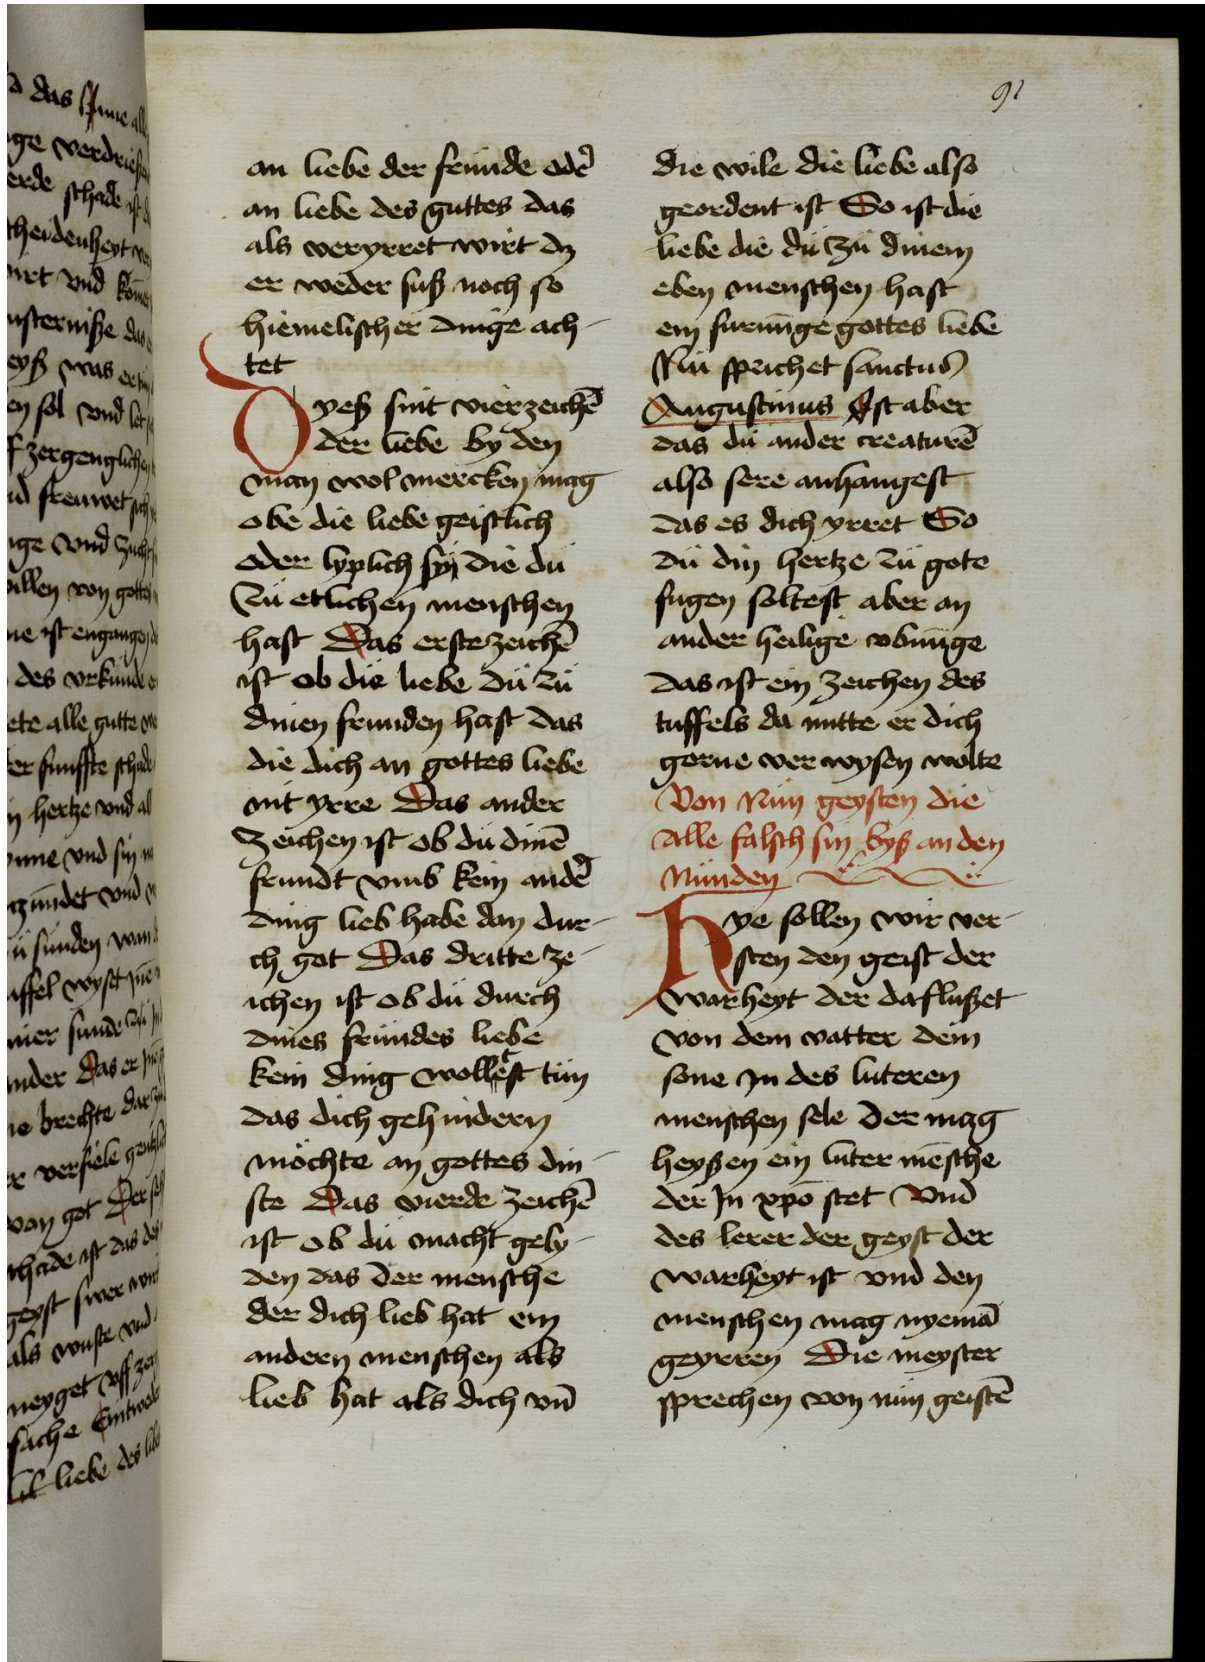 91
an liebe der frunde oder̄
an liebe des guttes das
als veryrret wirt dz
er weder suß noch so
hiemelischer dinge ach-
tet
Dyeß sint vier zeichē
der liebe by den
man wol mercken mag
obe die liebe geistlich
oder lyplich syn die dü
Zü etlichen menschen
hast Das erste zeichē
ist ob die liebe dü zü
dinen frunden hast das
die dich an gottes liebe
nit yrre Das ander
zeichen ist ob dü dinē
frundt vmb kein ander̄
ding lieb habe dan dur-
ch got Das dritte ze-
ichen ist ob dü durch
dines frundes liebe
kein ding wollest tün
das dich gehindern
möchte an gottes din-
ste Das vierde zeichē
ist ob dü macht gely-
den das der mensche
der dich lieb hat ein
andern menschen als
lieb hat als dich vn̄
die wile die liebe also
geordent ist So ist die
liebe die dü zü dinem
eben menschen hast
ein furunge gottes liebe
Nü sprichet sanctus
Augustinus Ist aber
das dü ander creaturē
also sere anhangest
das es dich yrret So
dü din hertze zü gote
fugen soltest aber an
ander heilige vbunge
das ist ein zeichen des
tuffels da mitte er dich
gerne verwysen wolte
Von Nün geysten die
alle falsch sin byß an den
Nünden
Hye sollen wir ver-
sten den geist der
warheyt der da flußet
von dem vatter dem
sone Jn des luteren
menschen sele der mag
heyßen ein luter mēsche
der Jn xpō stet Vnd
des lerer der geyst der
warheyt ist vnd den
menschen mag nyemā
geyrren Die meyster
sprechen von nün geistē